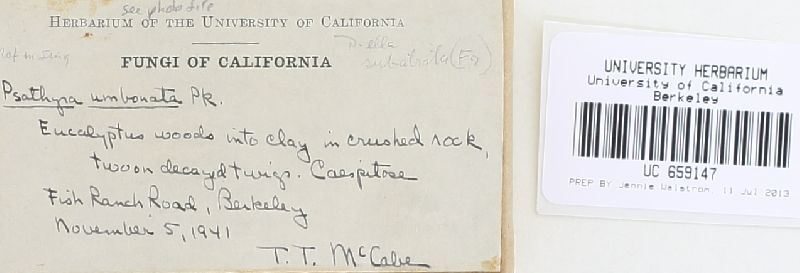 see photo file
HERBARIUM OF THE UNIVERSITY OF CALIFORNIA
FUNGI OF CALIFORNIA
P-ella
subatrata (Fr)
Psathyra umbonata Pk.
Eucalyptus woods into clay in crushed rock,
two on decayd twigs. Caespitose
Fish Ranch Road, Berkeley
November 5, 1941
T. T. McCabe
UNIVERSITY HERBARIUM
University of California
Berkeley
UC 659147
PREP BY Jennie Walstrom, 11 Jul 2013